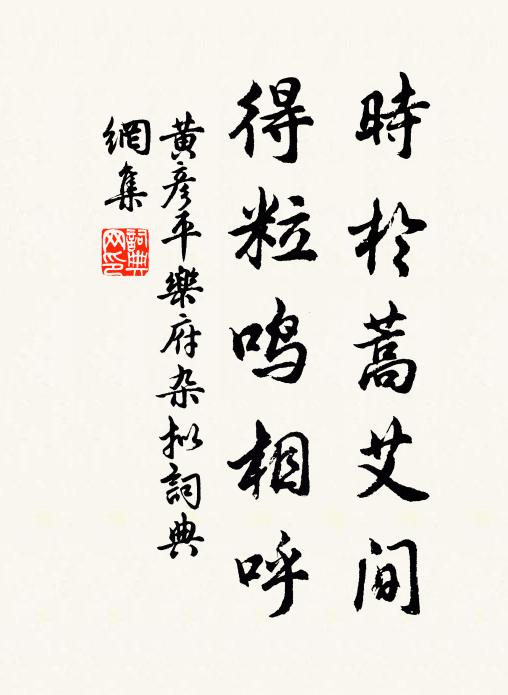 時於蒿艾间
得粒鸣相呼
黄彦平樂府杂拟詞典
網集
詞典网印